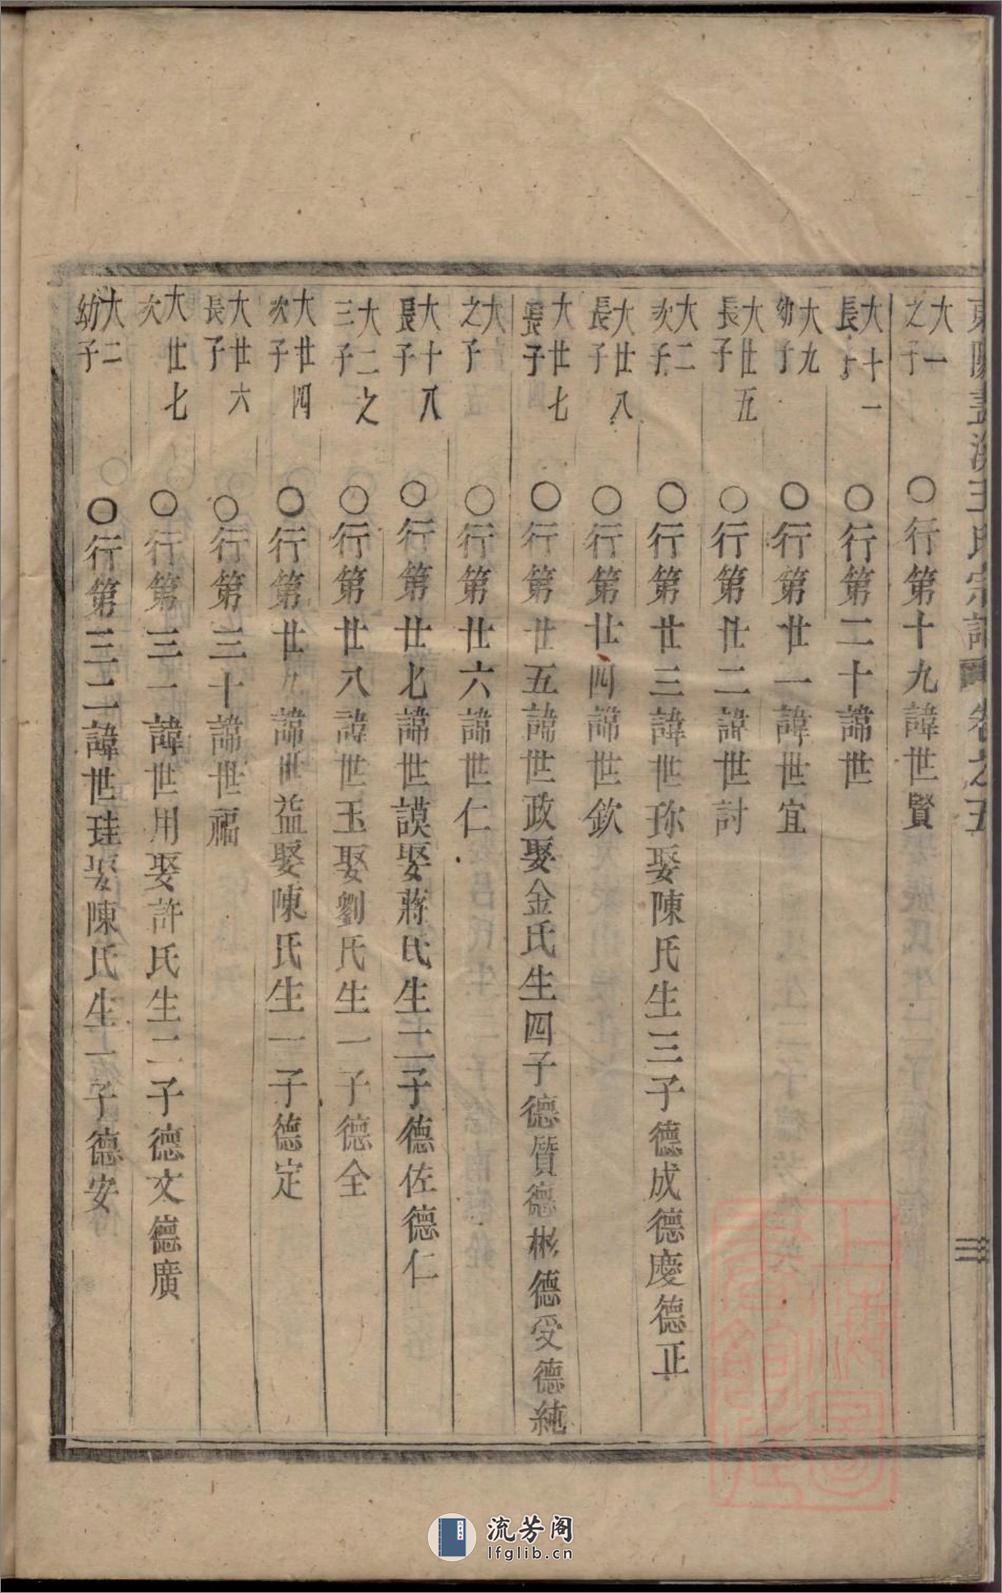 東陽孟溪王氏宗譜 卷之五
大一之子 ○行第十九諱世賢
大十一長子 ○行第二十諱世
大九幼子 ○行第廿一諱世宜
大廿五長子 ○行第廿二諱世討
大二次子 ○行第廿三諱世珎娶陳氏生三子德成德慶德正
大廿八長子 ○行第廿四諱世欽
大廿七長子 ○行第廿五諱世政娶金氏生四子德質德彬德受德純
大之子 ○行第廿六諱世仁
大十八長子 ○行第廿七諱世謨娶蔣氏生二子德佐德仁
大二之三子 ○行第廿八諱世玉娶劉氏生一子德全
大廿四次子 ○行第廿九諱世益娶陳氏生一子德定
大廿六長子 ○行第三十諱世福
大廿七次 ○行第三一諱世用娶許氏生二子德文德廣
大二幼子 ○行第三二諱世珪娶陳氏生一子德安
三
流芳阁
lfglib.cn